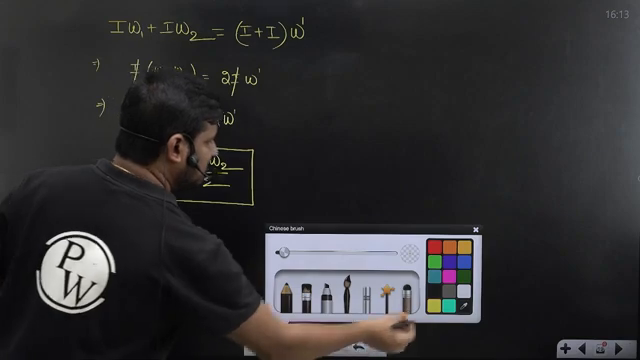 16:13
Iω₁ + Iω₂ = (I + I) ω'
⇒ = 2I ω'
⇒ ω'
ω₂
2
Chinese brush
P
W